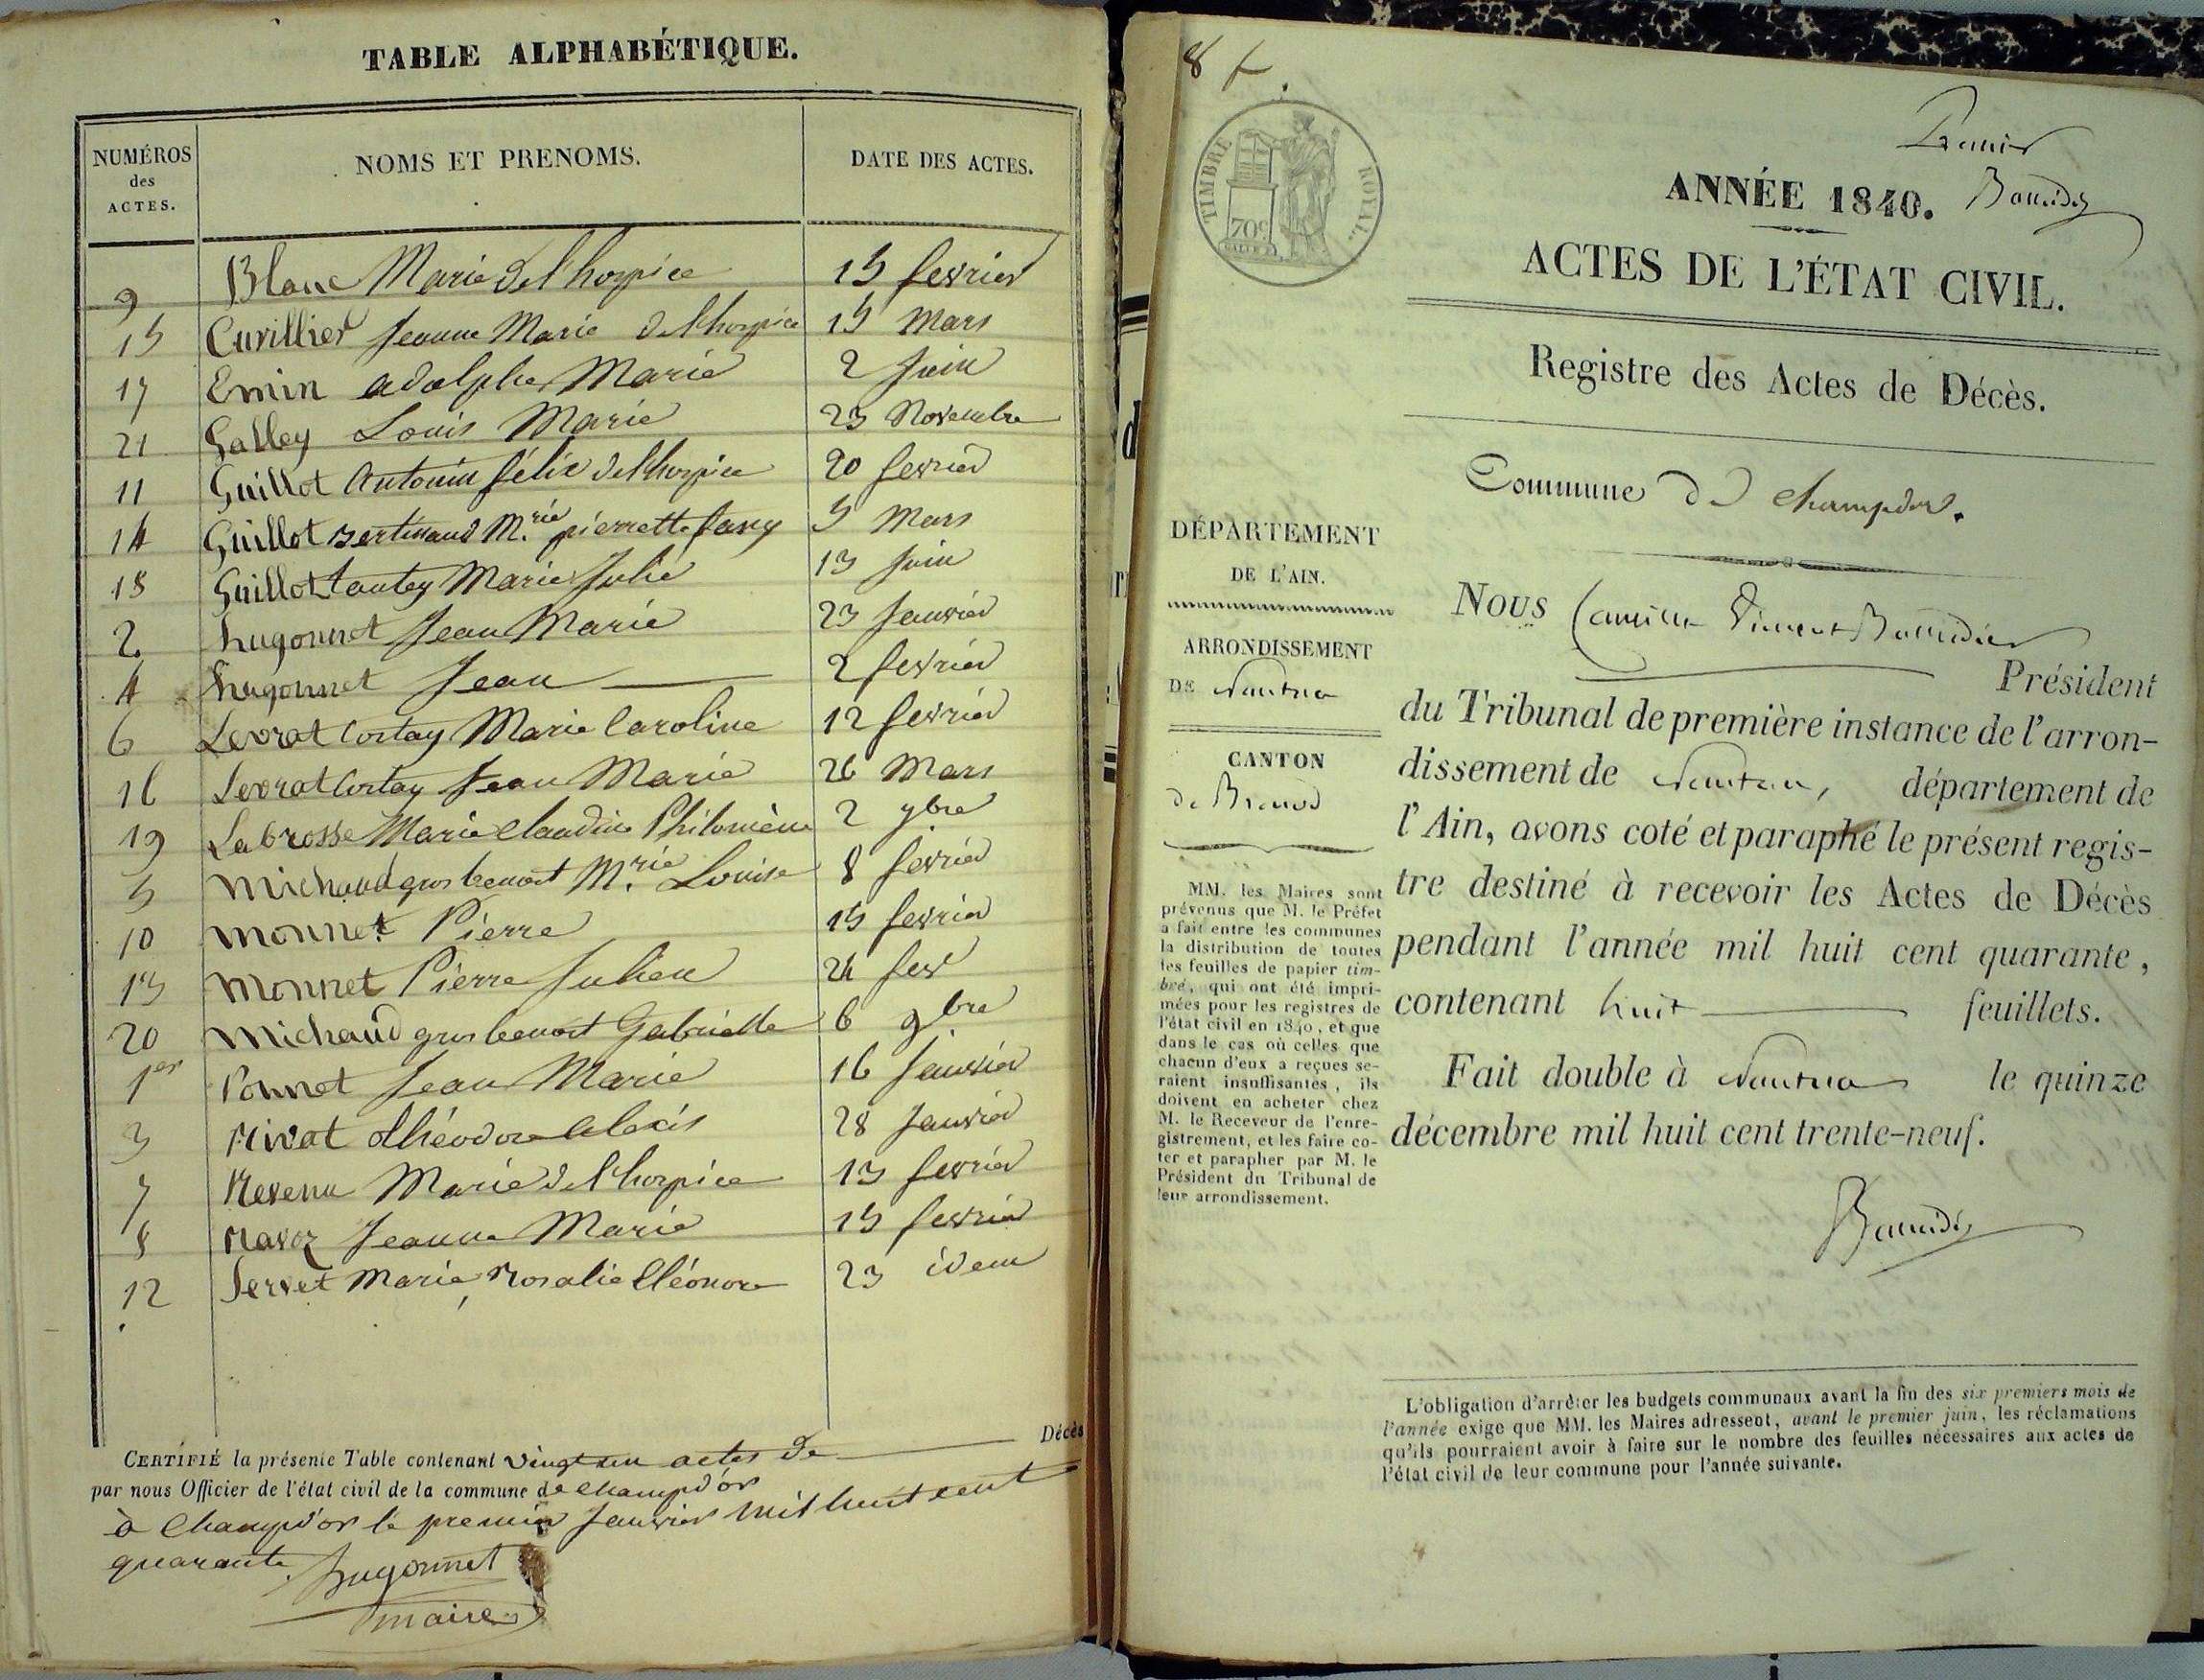 TABLE ALPHABÉTIQUE.
NUMÉROS des ACTES.
NOMS ET PRENOMS.
DATE DES ACTES.
9 Blanc Marie de l'hospice 15 fevrier
15 Cuvillier Jeanne Marie de l'hospice 15 Mars
17 Emin adolphe Marie 2 Juin
21 Galley Louis Marie 23 Novembre
11 Guillot Antonin félix de l'hospice 20 fevrier
14 Guillot Bertinaud M.rie pierrette fany 5 Mars
18 Guillot tantey Marie Julie 13 Juin
2 hugonnet Jean Marie 23 Janvier
4 hugonnet Jean 2 fevrier
6 Levrat Cortay Marie Caroline 12 fevrier
16 Levrat Cortay Jean Marie 26 Mars
19 Labrosse Marie Claudine Philomène 2 7bre
5 Michaud gros benoit M.rie Louise 8 fevrier
10 Monnet Pierre 15 fevrier
13 Monnet Pierre Julien 24 fev
20 Michaud gros benoit Gabrielle 6 9bre
1er Ponnet Jean Marie 16 Janvier
3 Rivat théodore alexis 28 Janvier
7 Revenu Marie de l'hospice 13 fevrier
8 Ravoz Jeanne Marie 15 fevrier
12 Servet Marie Rosalie Eléonore 23 idem
CERTIFIÉ la présente Table contenant vingt un actes de Décès
par nous Officier de l'état civil de la commune de Champd'or
à Champd'or le premier Janvier mil huit cent
quarante.
hugonnet
maire
8 f.
TIMBRE ROYAL.
70c
Premier
Baudin
ANNÉE 1840.
ACTES DE L'ÉTAT CIVIL.
Registre des Actes de Décès.
Commune de Champdor.
DÉPARTEMENT
DE L'AIN.
ARRONDISSEMENT
DE Nantua
CANTON
de Brenod
MM. les Maires sont
prévenus que M. le Préfet
a fait entre les communes
la distribution de toutes
les feuilles de papier tim-
bré, qui ont été impri-
mées pour les registres de
l'état civil en 1840, et que
dans le cas où celles que
chacun d'eux a reçues se-
raient insuffisantes, ils
doivent en acheter chez
M. le Receveur de l'enre-
gistrement, et les faire co-
ter et parapher par M. le
Président du Tribunal de
leur arrondissement.
Nous
Président
du Tribunal de première instance de l'arron-
dissement de Nantua, département de
l'Ain, avons coté et paraphé le présent regis-
tre destiné à recevoir les Actes de Décès
pendant l'année mil huit cent quarante,
contenant huit feuillets.
Fait double à Nantua le quinze
décembre mil huit cent trente-neuf.
L'obligation d'arrêter les budgets communaux avant la fin des six premiers mois de
l'année exige que MM. les Maires adressent, avant le premier juin, les réclamations
qu'ils pourraient avoir à faire sur le nombre des feuilles nécessaires aux actes de
l'état civil de leur commune pour l'année suivante.